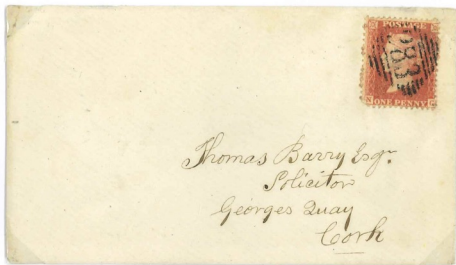 POSTAGE
ONE PENNY
Thomas Barry Esqr
Solicitor
Georges Quay
Cork